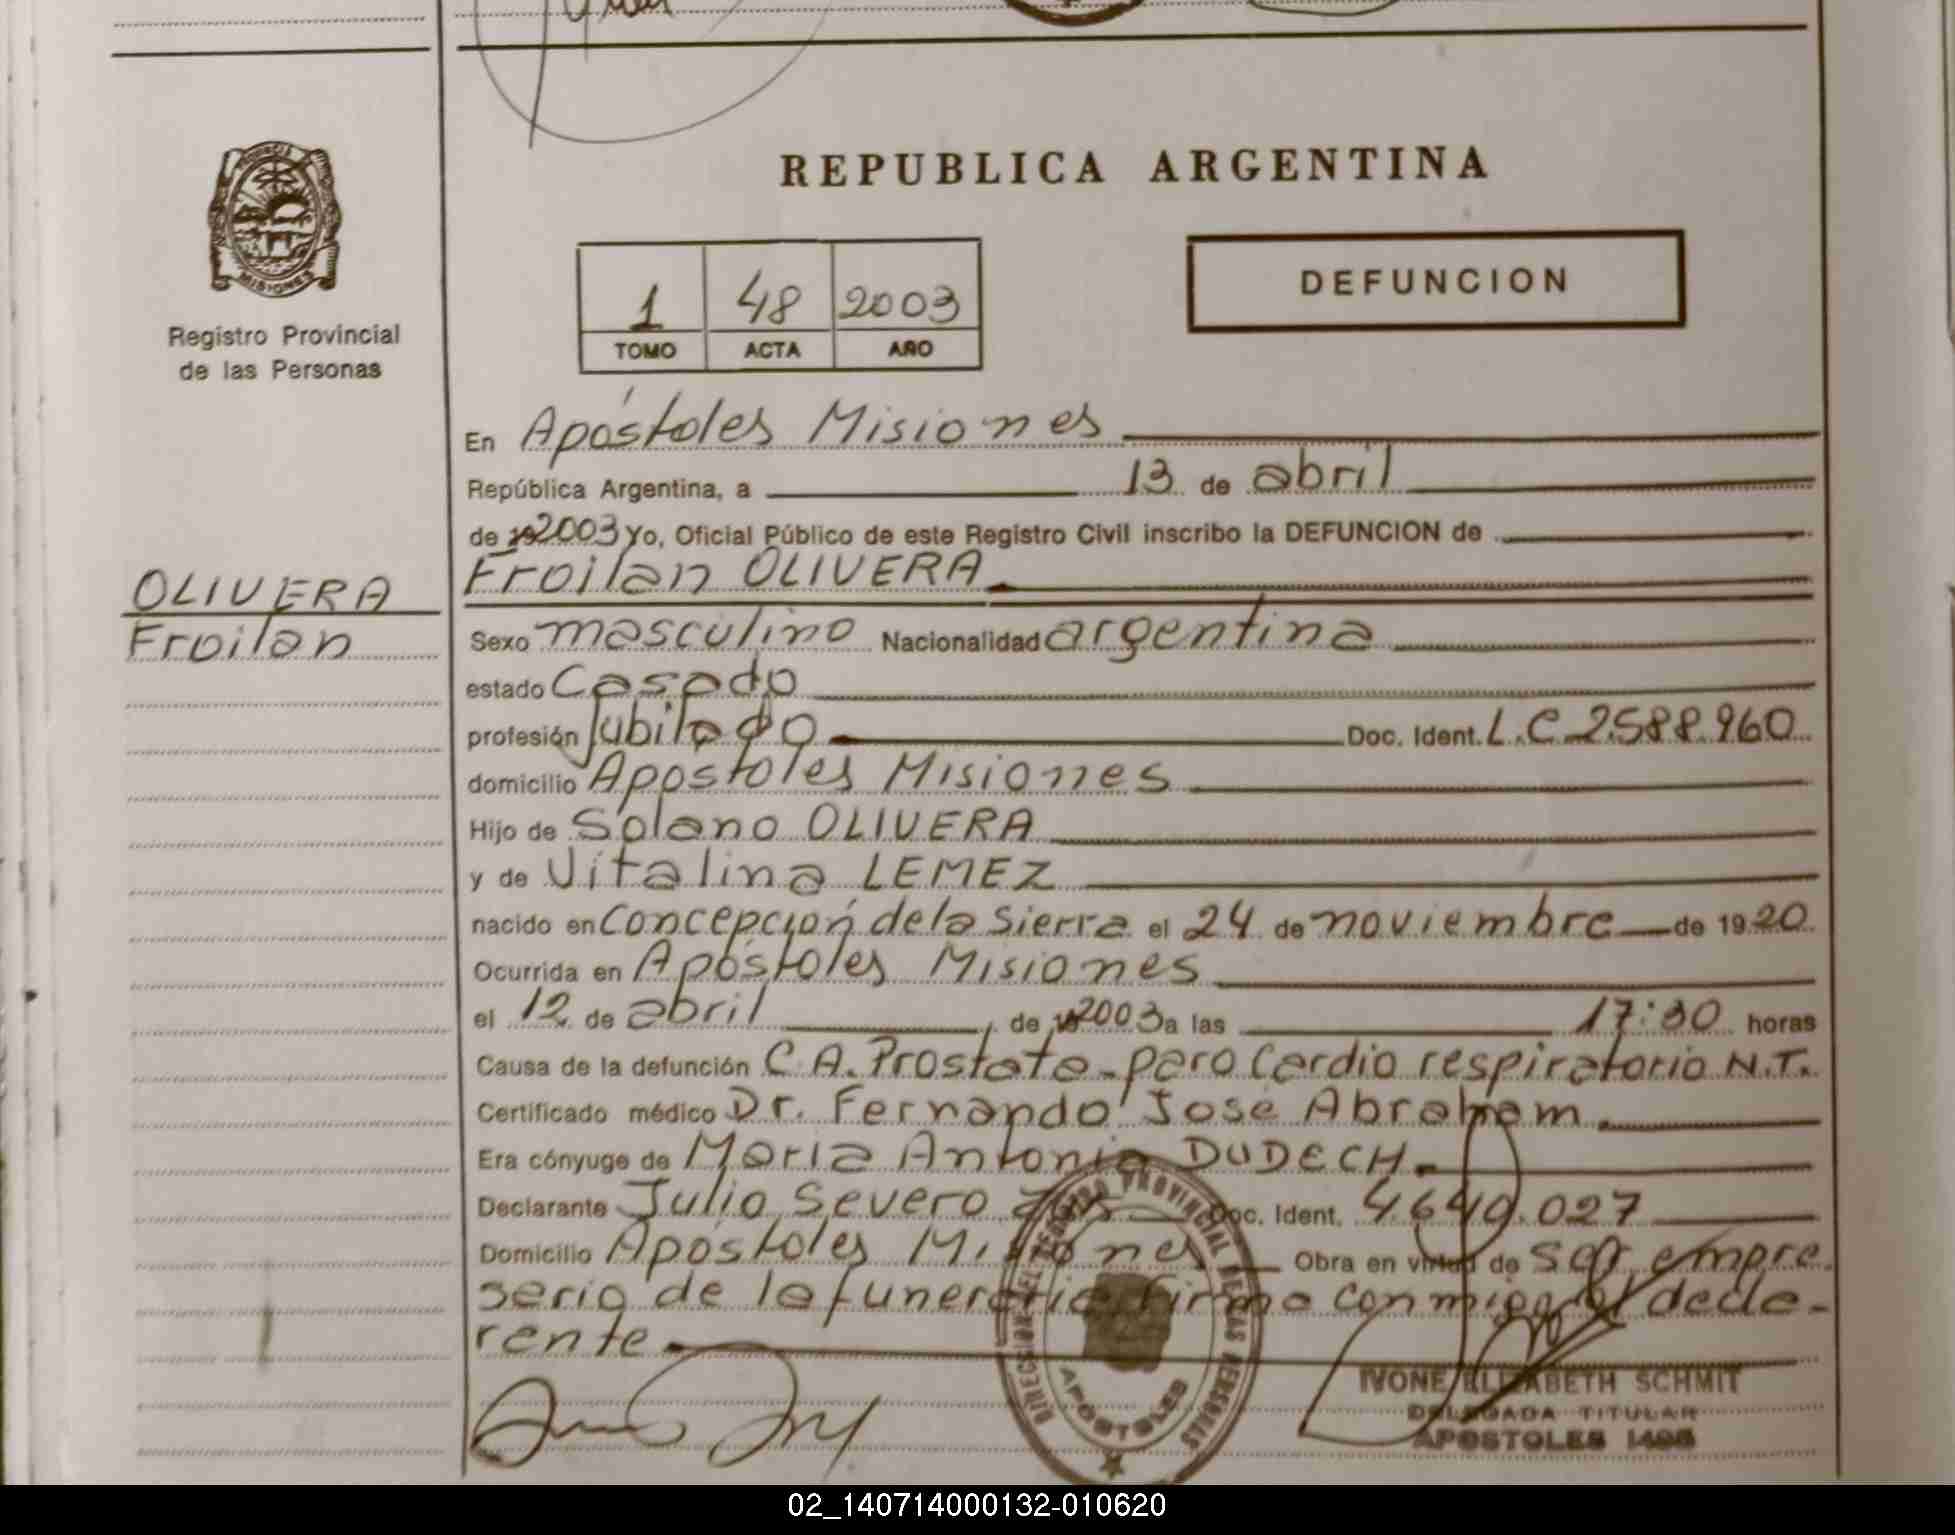 REPUBLICA ARGENTINA
PROVINCIA
MISIONES
Registro Provincial
de las Personas
1 48 2003
TOMO ACTA AÑO
DEFUNCION
En Apóstoles Misiones
República Argentina, a 13 de abril
de 19 2003 Yo, Oficial Público de este Registro Civil inscribo la DEFUNCION de
OLIVERA
Froilan
Froilan OLIVERA
Sexo masculino Nacionalidad argentina
estado Casado
profesión Jubilado Doc. Ident. L.C. 2.588.960
domicilio Apostoles Misiones
Hijo de Solano OLIVERA
y de Vitalina LEMEZ
nacido en Concepción de la Sierra el 24 de noviembre de 1920
Ocurrida en Apóstoles Misiones
el 12 de abril, de 19 2003 a las 17:30 horas
Causa de la defunción C.A. Prostata - paro Cardio respiratorio N.T.
Certificado médico Dr. Fernando José Abraham.
Era cónyuge de Maria Antonia DUDECH.
Declarante Julio Severo Doc. Ident. 4.640.027
Domicilio Apóstoles Misiones Obra en virtud de ser empre
sario de la funeraria firma conmigo el decla-
rente
DIRECCION DEL REGISTRO PROVINCIAL DE LAS PERSONAS
APOSTOLES
IVONE ELIZABETH SCHMIT
DELEGADA TITULAR
APOSTOLES 1495
02_140714000132-010620